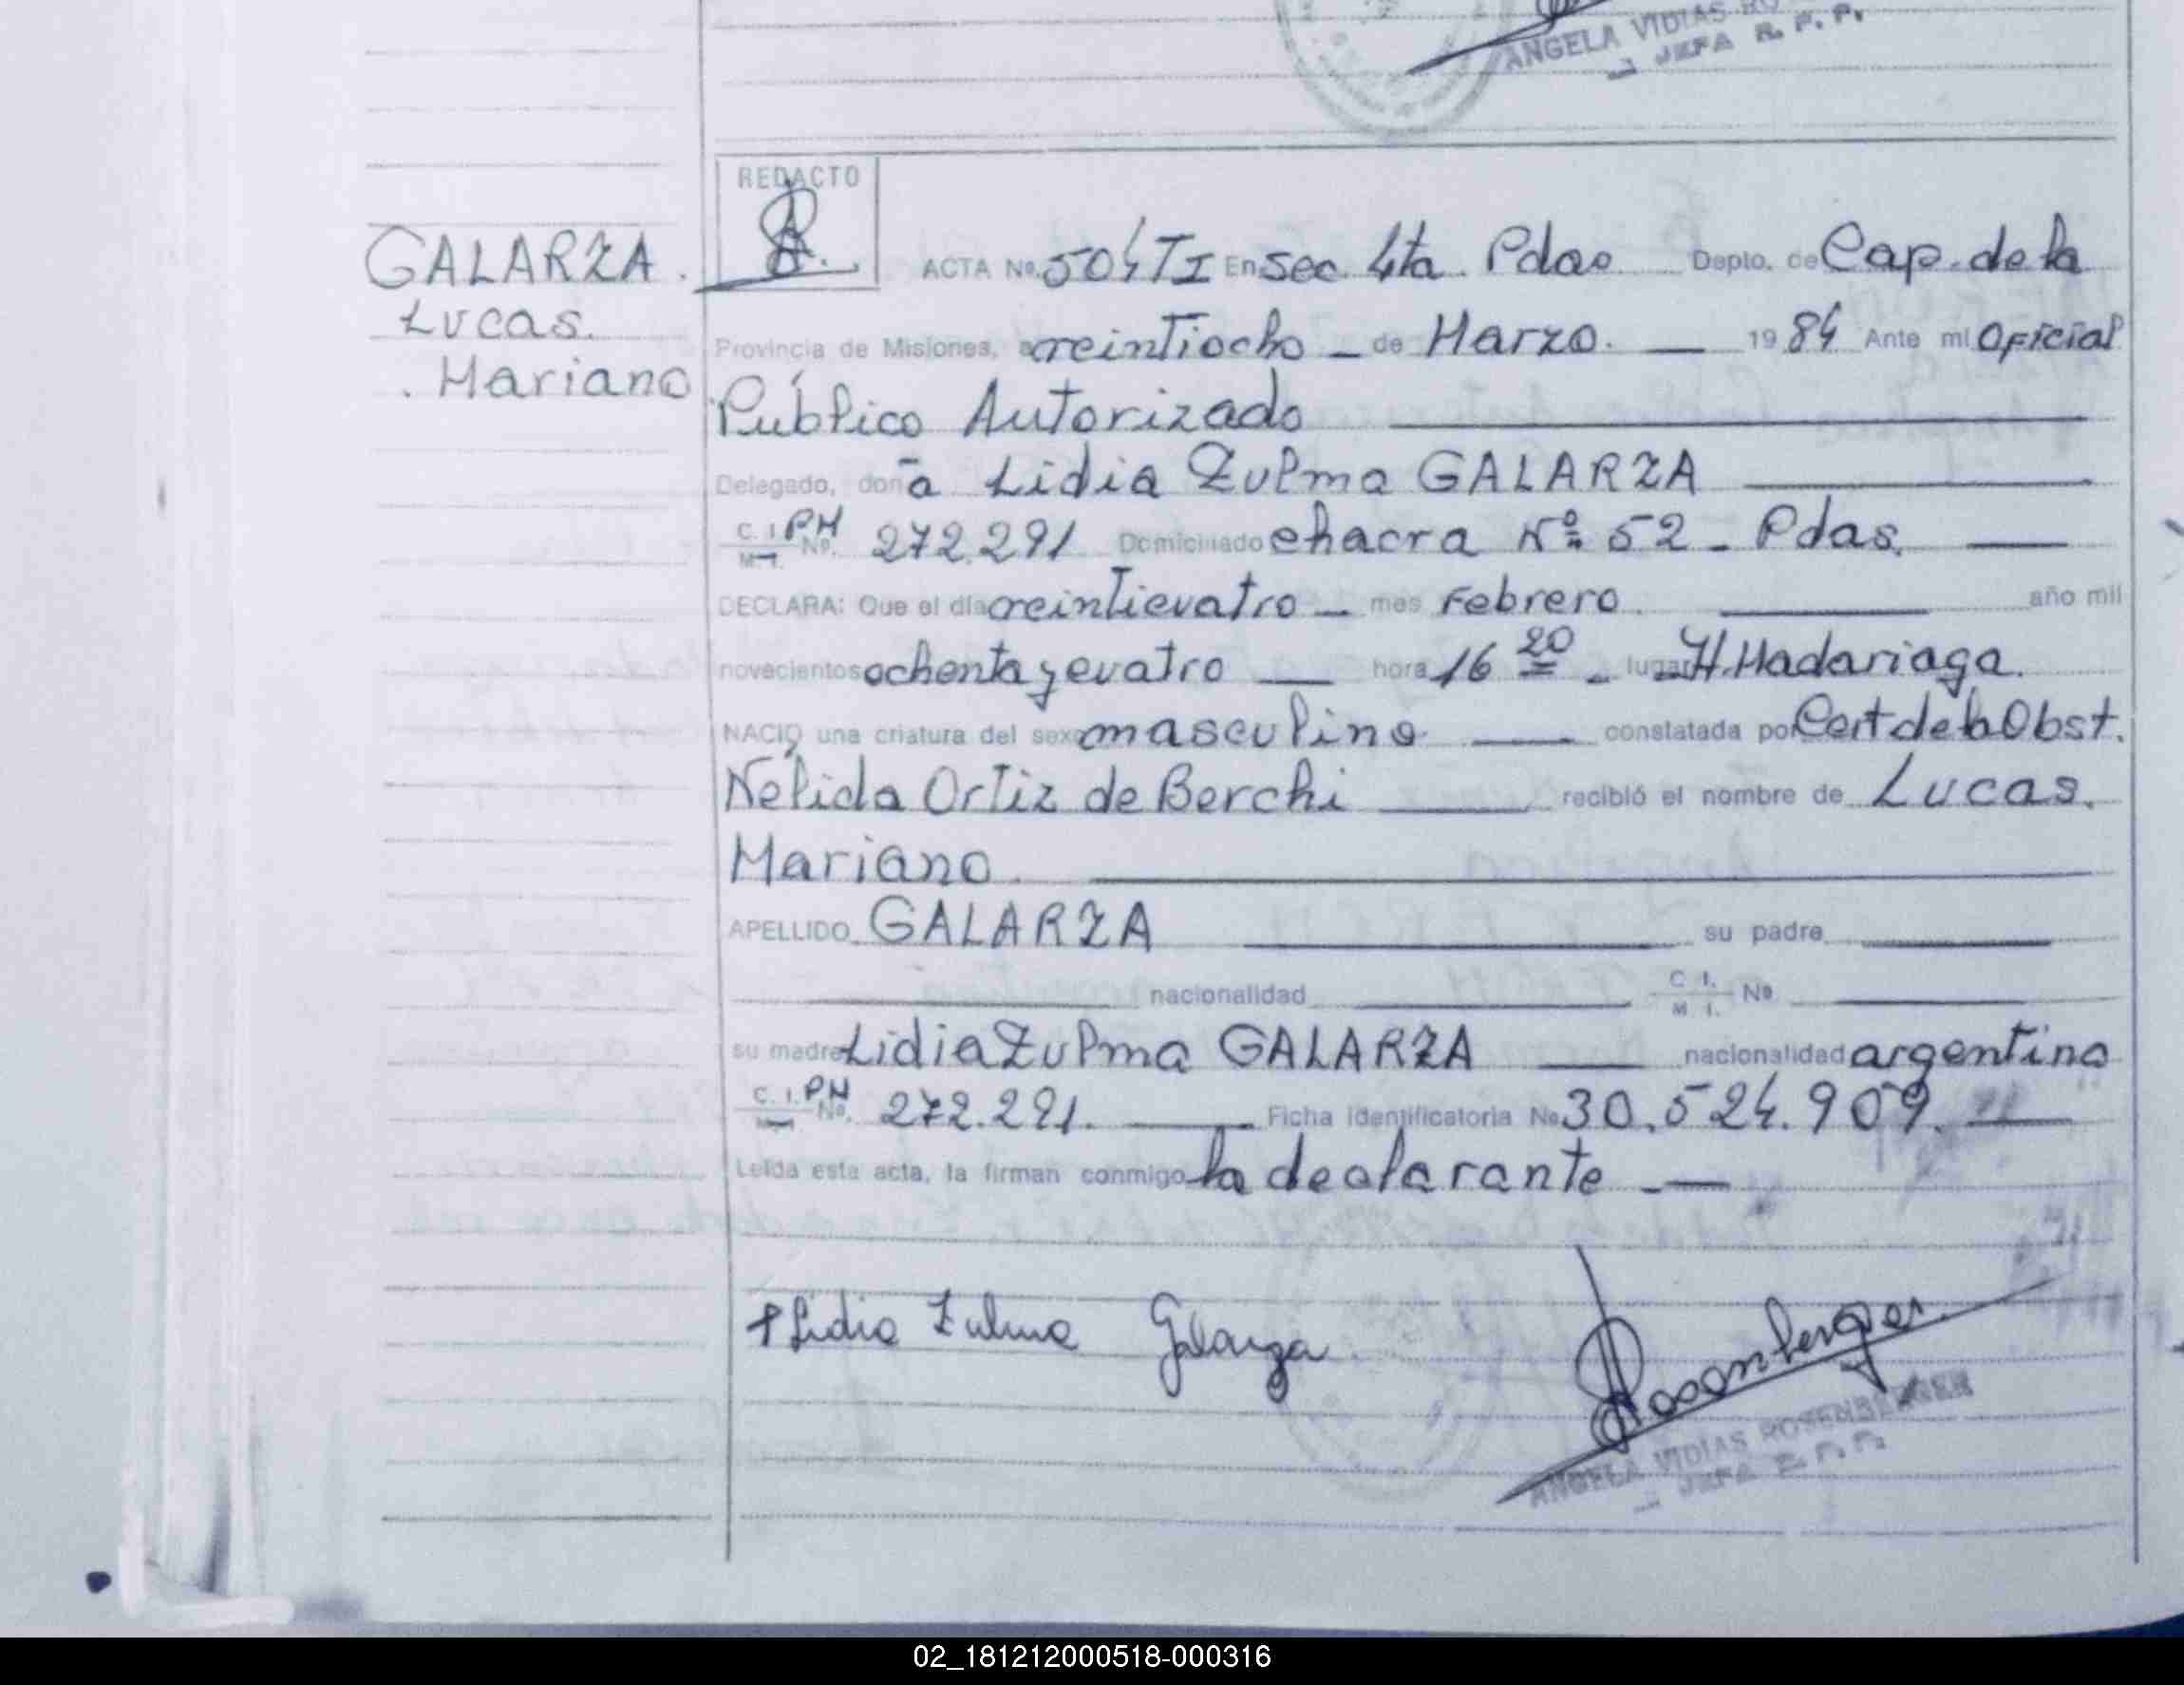 ANGELA VIDIAS RO
JEFA R. P. P.
REDACTO
GALARZA.
Lucas.
Mariano
ACTA No. 504TI En Sec 4ta Pdas Depto. de Cap. de la
Provincia de Misiones, a veintiocho de Marzo. 1984 Ante mi Oficial
Público Autorizado
Delegado, doña Lidia Zulma GALARZA
C. I. PM No. 272.291 Domiciliado chacra Nº 52 - Pdas.
M. I.
DECLARA: Que el día veinticuatro mes Febrero. año mil
novecientos ochenta y cuatro hora 16 20 lugar H. Madariaga.
NACIO una criatura del sexo masculino constatada por Cert de la Obst.
Nélida Ortiz de Berchi recibió el nombre de Lucas.
Mariano.
APELLIDO GALARZA su padre
nacionalidad C. I. No
M. I.
su madre Lidia Zulma GALARZA nacionalidad argentina
C. I. PM No. 272.291. Ficha Identificatoria No 30.524.909.
Leída esta acta, la firman conmigo la declarante
Lidia Zulma Galarza
Rosenberger
ANGELA VIDIAS ROSENBERGER
JEFA R. P. P.
02_181212000518-000316